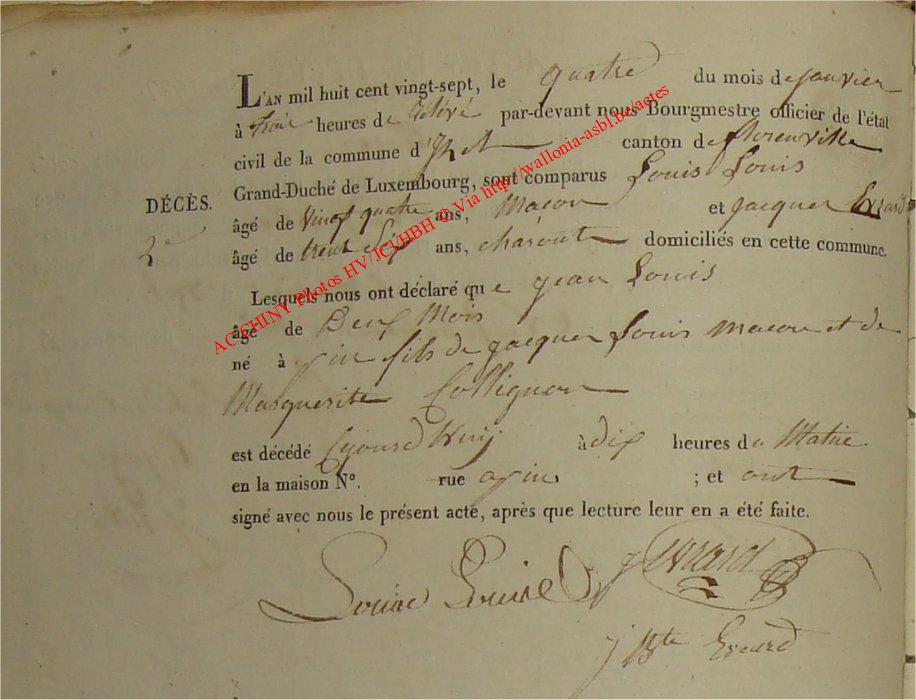 L'AN mil huit cent vingt-sept, le quatre du mois de janvier
à trois heures de Rélévé par-devant nous Bourgmestre officier de l'état
civil de la commune d' canton de florenville
Grand-Duché de Luxembourg, sont comparus Louis Louis
DÉCÈS.
2e
âgé de vingt quatre ans, Macon et jacques Evrard
âgé de trent ans, domiciliés en cette commune.
Lesquels nous ont déclaré que jean Louis
âgé de Deux Mois
né à fils de jacques Louis macon et de
Marguerite Collignon
est décédé à dix heures du Matin
en la maison N°. rue ; et ont
signé avec nous le présent acte, après que lecture leur en a été faite.
Louis Louis j Evrard
j Bte Evrard
ACCHINY Photos HV/JCVHBH © Via http://wallonia-asbl.be/actes